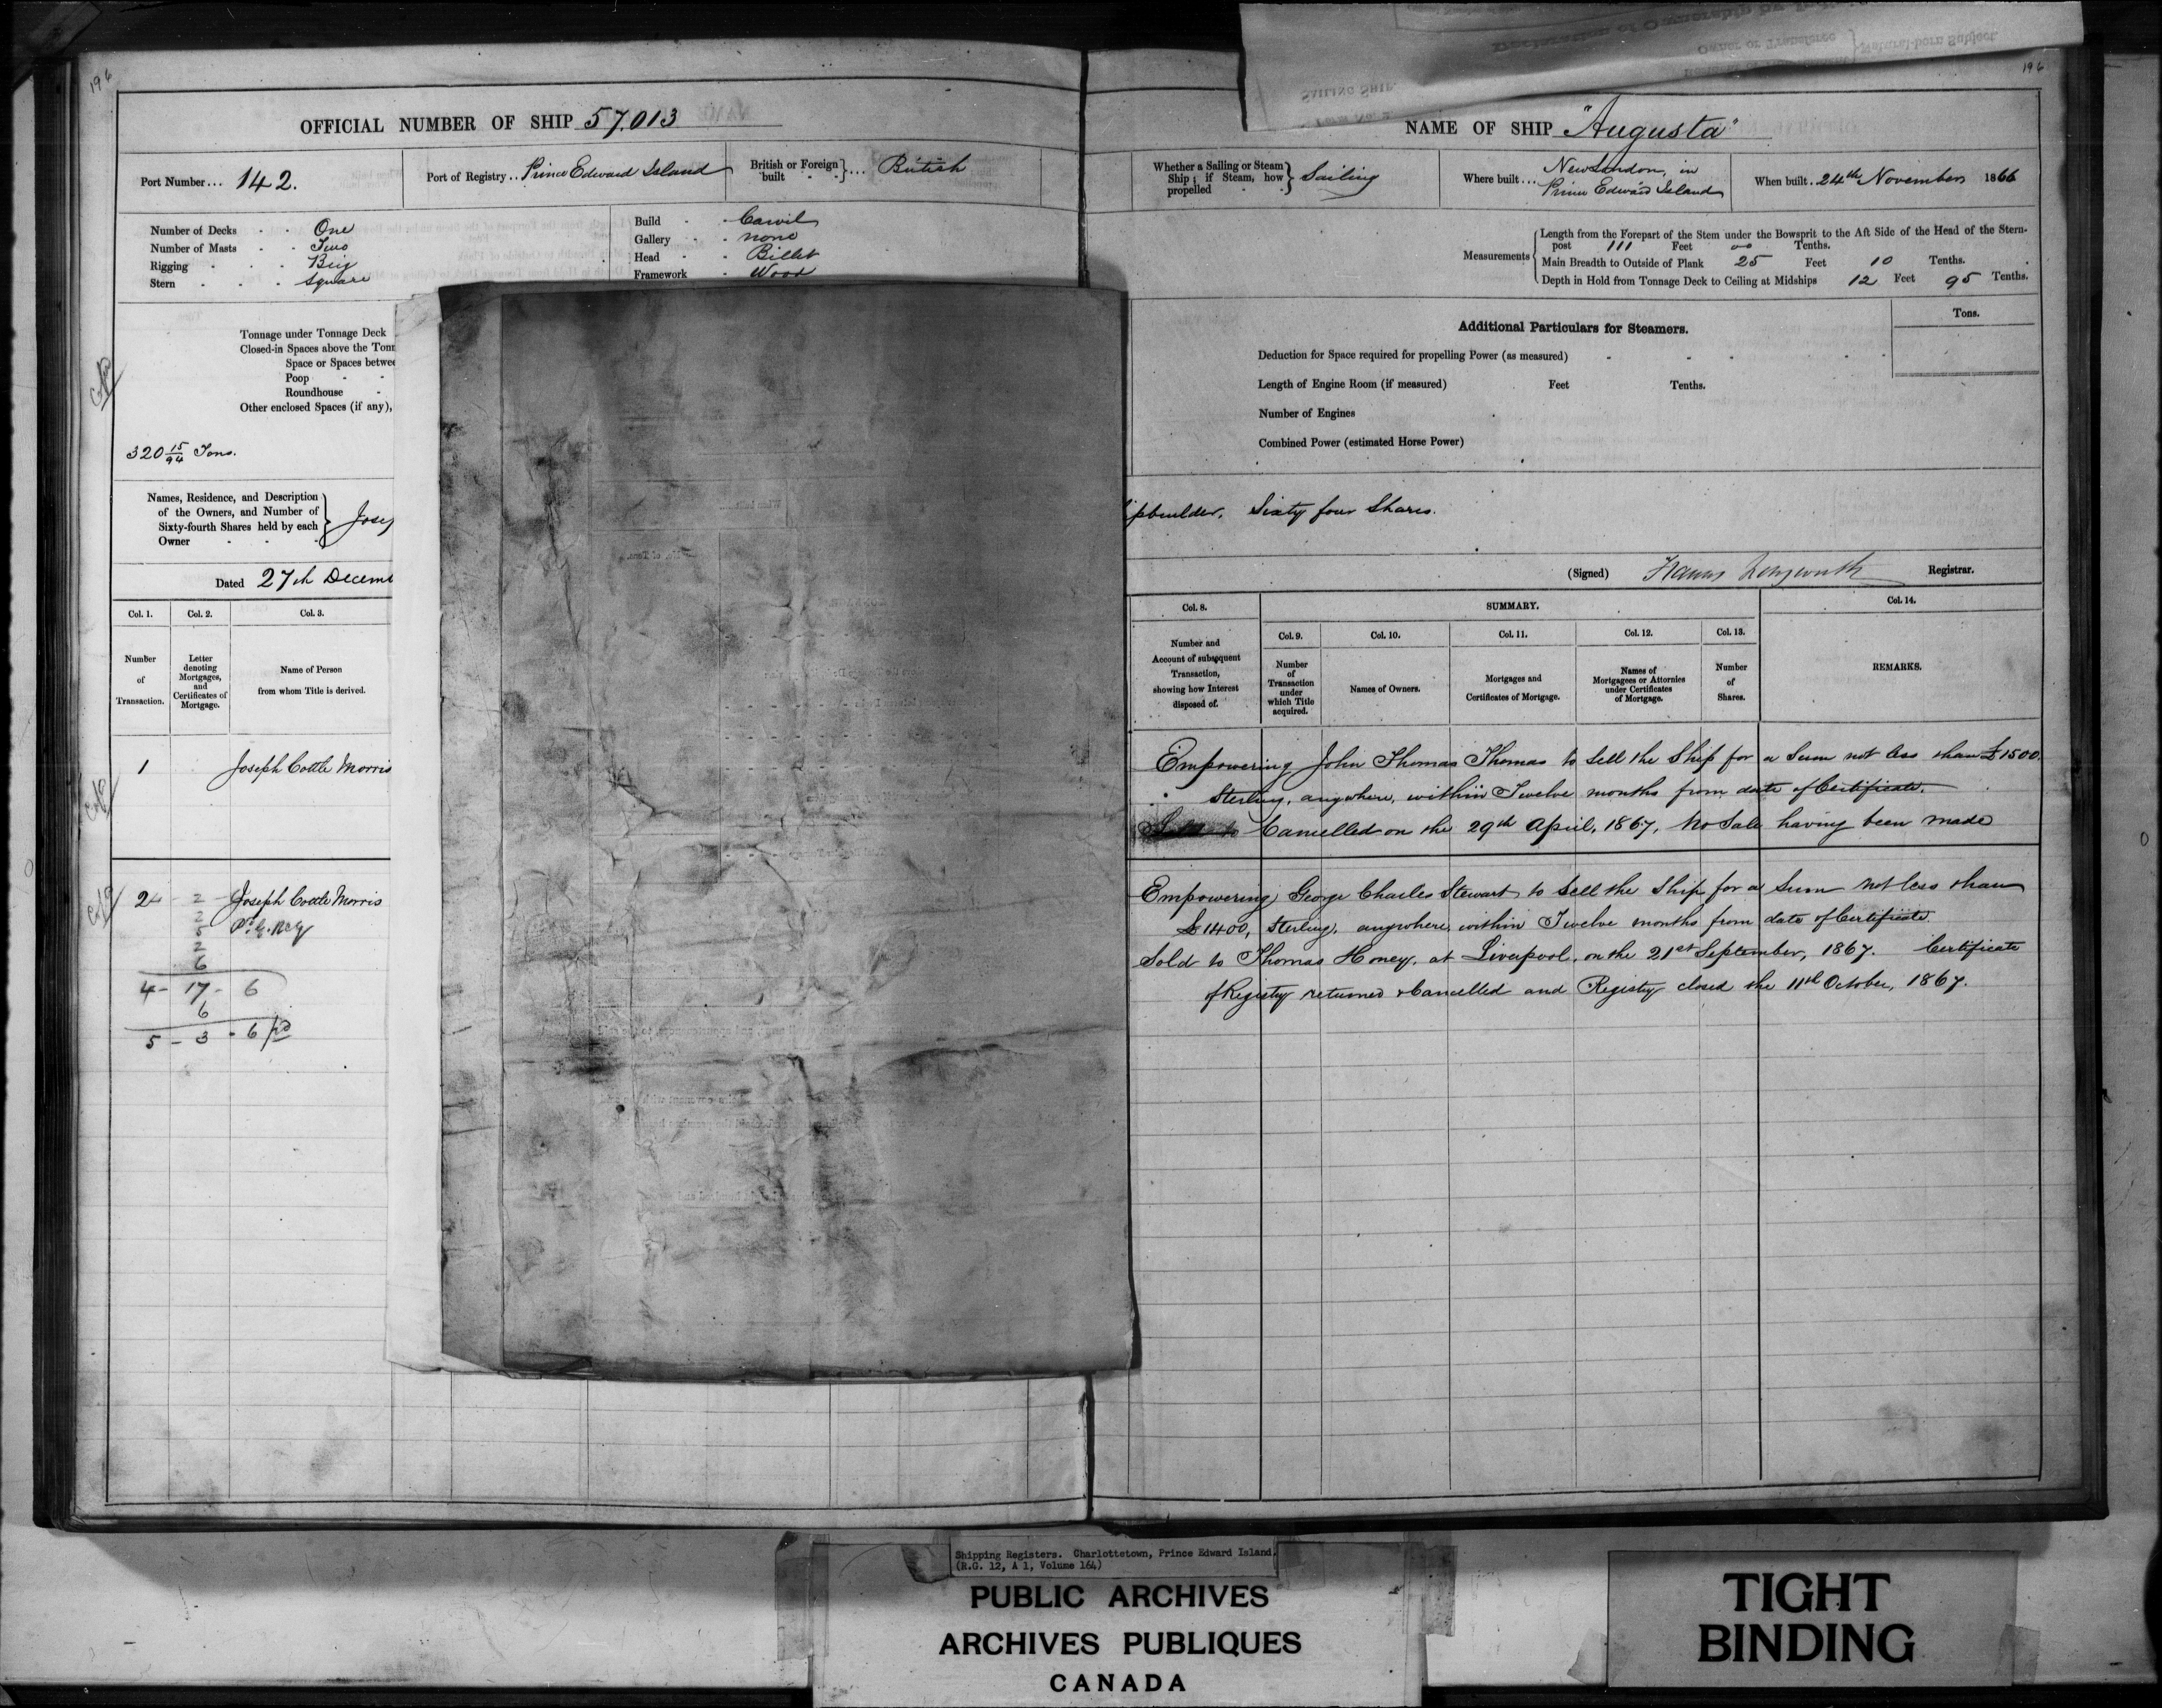 196
OFFICIAL NUMBER OF SHIP 57,013
Port Number... 142.
Port of Registry.. Prince Edward Island
British or Foreign built }... British
Number of Decks One
Number of Masts Two
Rigging Brig
Stern Square
Build Carvil
Gallery none
Head Billet
Framework Wood
Tonnage under Tonnage Deck
Closed-in Spaces above the Tonn
Space or Spaces betwee
Poop
Roundhouse
Other enclosed Spaces (if any),
320 15/94 Tons.
Names, Residence, and Description
of the Owners, and Number of
Sixty-fourth Shares held by each
Owner
Josep
Dated 27th Decemb
Col. 1. Col. 2. Col. 3.
Number of Transaction.
Letter denoting Mortgages, and Certificates of Mortgage.
Name of Person from whom Title is derived.
1 Joseph Cottle Morris
2 Joseph Cottle Morris
2
2
5
2
6
4 - 17 - 6
6
5 - 3 - 6
196
SAILING SHIP.
NAME OF SHIP "Augusta"
Whether a Sailing or Steam Ship; if Steam, how propelled } Sailing
Where built... New London, in
Prince Edward Island
When built. 24th November 1866
Measurements
Length from the Forepart of the Stem under the Bowsprit to the Aft Side of the Head of the Stern-
post 111 Feet 00 Tenths.
Main Breadth to Outside of Plank 25 Feet 10 Tenths.
Depth in Hold from Tonnage Deck to Ceiling at Midships 12 Feet 95 Tenths.
Additional Particulars for Steamers.
Tons.
Deduction for Space required for propelling Power (as measured)
Length of Engine Room (if measured) Feet Tenths.
Number of Engines
Combined Power (estimated Horse Power)
ipbuilder, Sixty four Shares.
(Signed) Francis Longworth Registrar.
Col. 8. SUMMARY. Col. 14.
Col. 9. Col. 10. Col. 11. Col. 12. Col. 13.
Number and Account of subsequent Transaction, showing how Interest disposed of.
Number of Transaction under which Title acquired.
Names of Owners.
Mortgages and Certificates of Mortgage.
Names of Mortgagees or Attornies under Certificates of Mortgage.
Number of Shares.
REMARKS.
Empowering John Thomas Thomas to sell the Ship for a Sum not less than £1500.
Sterling, anywhere, within Twelve months from date of Certificate.
Cancelled on the 29th April, 1867, No Sale having been made
Empowering George Charles Stewart to Sell the Ship for a Sum not less than
£1400, Sterling, anywhere within Twelve months from date of Certificate.
Sold to Thomas Honey, at Liverpool, on the 21st September, 1867. Certificate
of Registry returned & Cancelled and Registry closed the 11th October, 1867.
Shipping Registers. Charlottetown, Prince Edward Island.
(R.G. 12, A 1, Volume 164)
PUBLIC ARCHIVES
ARCHIVES PUBLIQUES
CANADA
TIGHT
BINDING